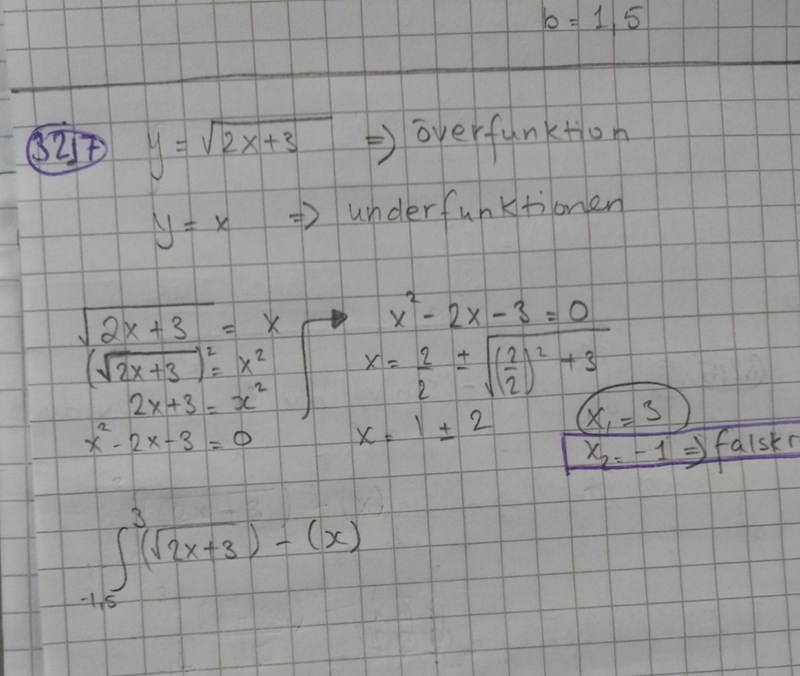 b = 1,5
3217 y = √(2x+3) => överfunktion
y = x => underfunktionen
√(2x+3) = x
(√(2x+3))² = x²
2x+3 = x²
x² - 2x - 3 = 0
x² - 2x - 3 = 0
x = 2/2 ± √((2/2)² + 3)
x = 1 ± 2
x₁ = 3
x₂ = -1 => falskr
∫₋₁,₅³ (√(2x+3)) - (x)